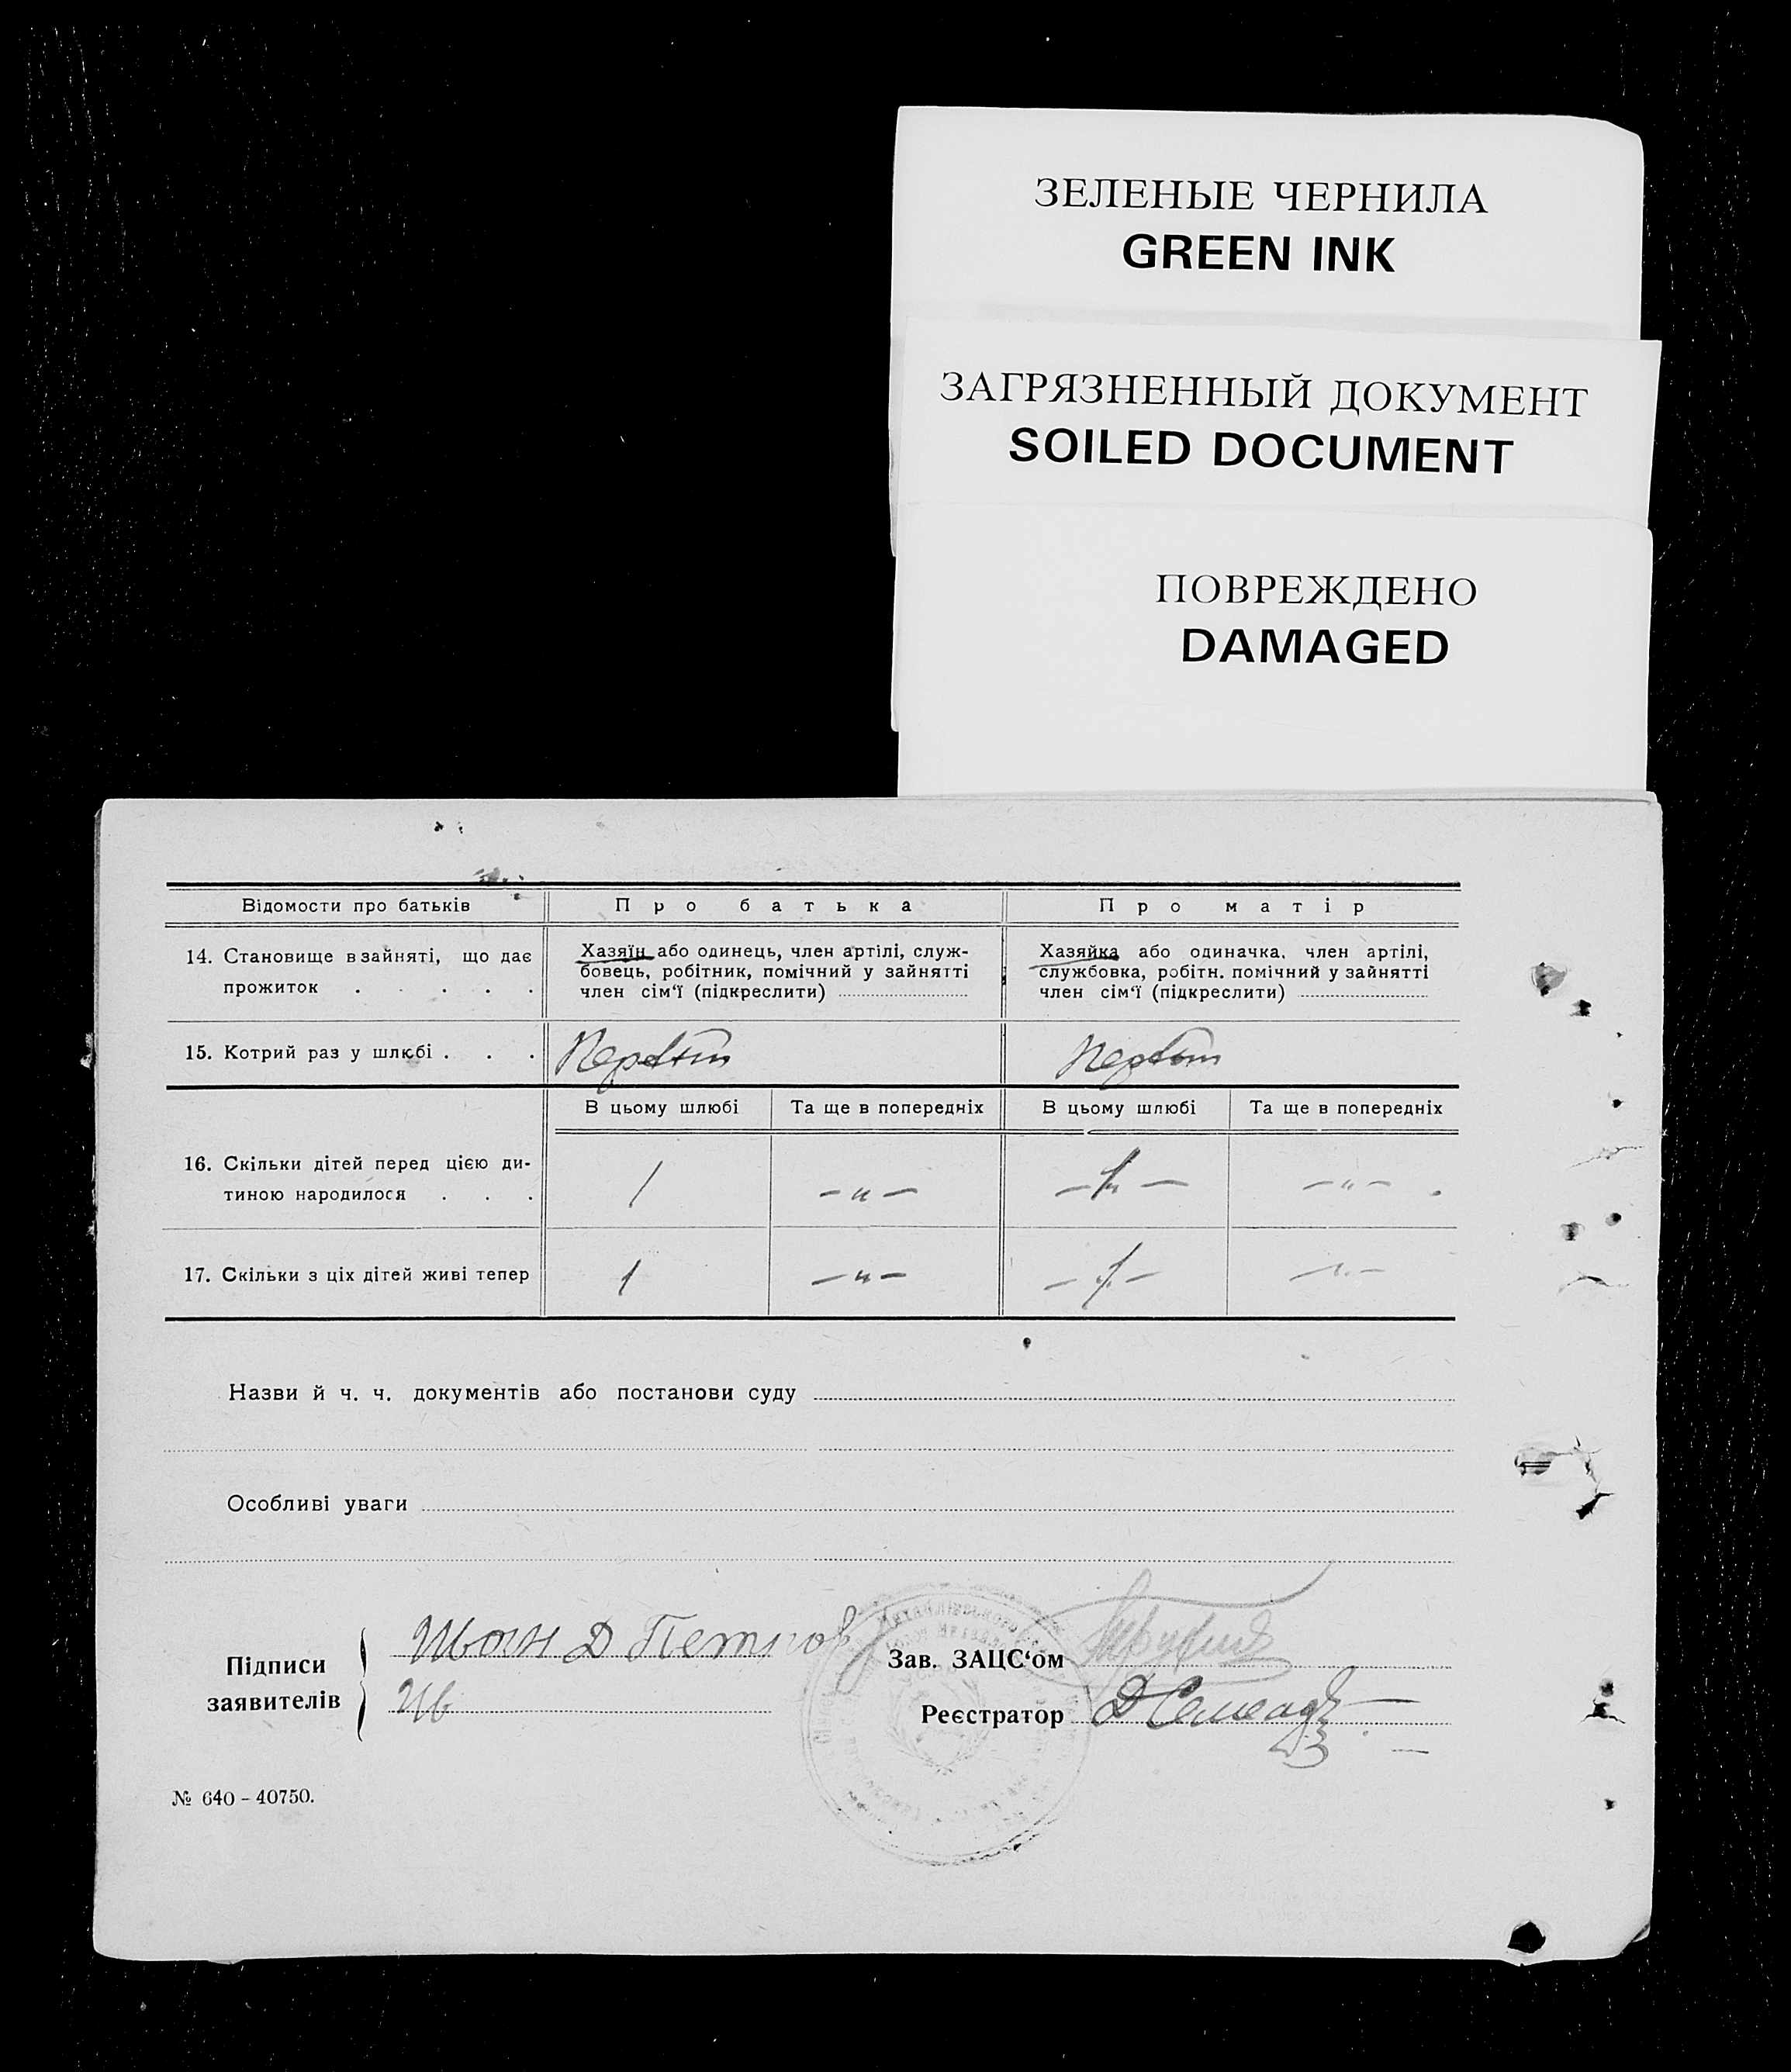 ЗЕЛЕНЫЕ ЧЕРНИЛА
GREEN INK
ЗАГРЯЗНЕННЫЙ ДОКУМЕНТ
SOILED DOCUMENT
ПОВРЕЖДЕНО
DAMAGED
Відомости про батьків Про батька Про матір
14. Становище в зайняті, що дає прожиток . . . . .
Хазяїн або одинець, член артілі, служ-
бовець, робітник, помічний у зайнятті
член сім‘ї (підкреслити)
Хазяйка або одиначка, член артілі,
службовка, робітн. помічний у зайнятті
член сім‘ї (підкреслити)
15. Котрий раз у шлюбі . . .
В цьому шлюбі Та ще в попередніх В цьому шлюбі Та ще в попередніх
16. Скільки дітей перед цією ди-
тиною народилося . . . 1 — „ — — 1 — — „ —
17. Скільки з ціх дітей живі тепер 1 — „ — — 1 — — „ —
Назви й ч. ч. документів або постанови суду
Особливі уваги
Підписи
заявителів
Иван Д Петров
Ив
Зав. ЗАЦС‘ом
Реєстратор
№ 640 – 40750.